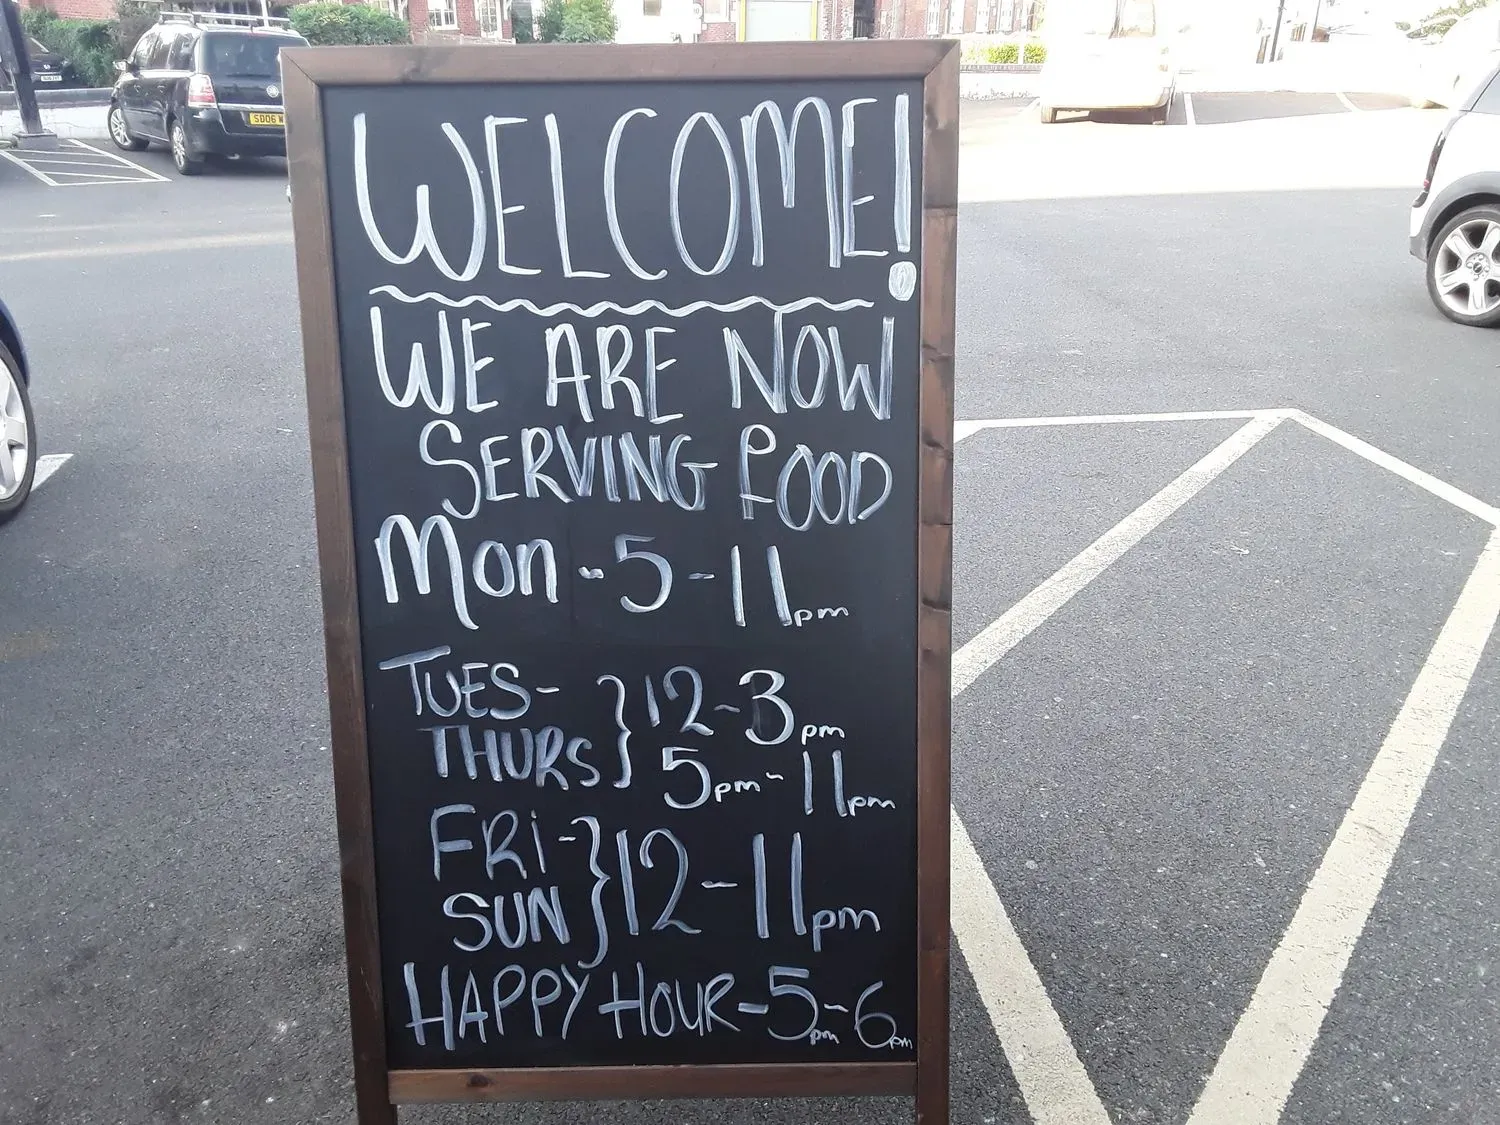 WELCOME!
WE ARE NOW
SERVING FOOD
Mon - 5 - 11pm
TUES- } 12-3pm
THURS 5pm-11pm
FRi- } 12-11pm
SUN
HAPPY HOUR-5pm-6pm
SD06